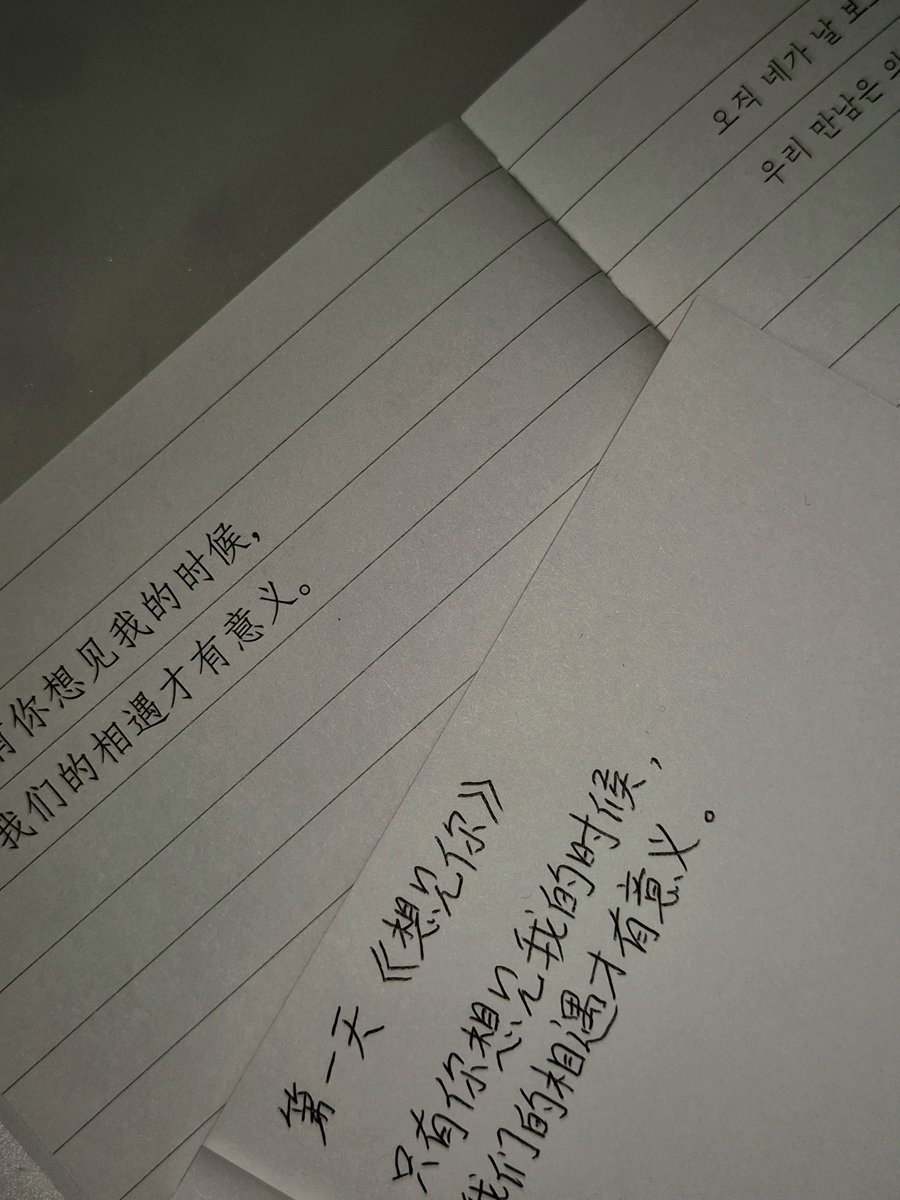 오직 네가 날
우리 만남은
你想见我的时候,
我们的相遇才有意义。
第一天《想见你》
只有你想见我的时候,
我们的相遇才有意义。